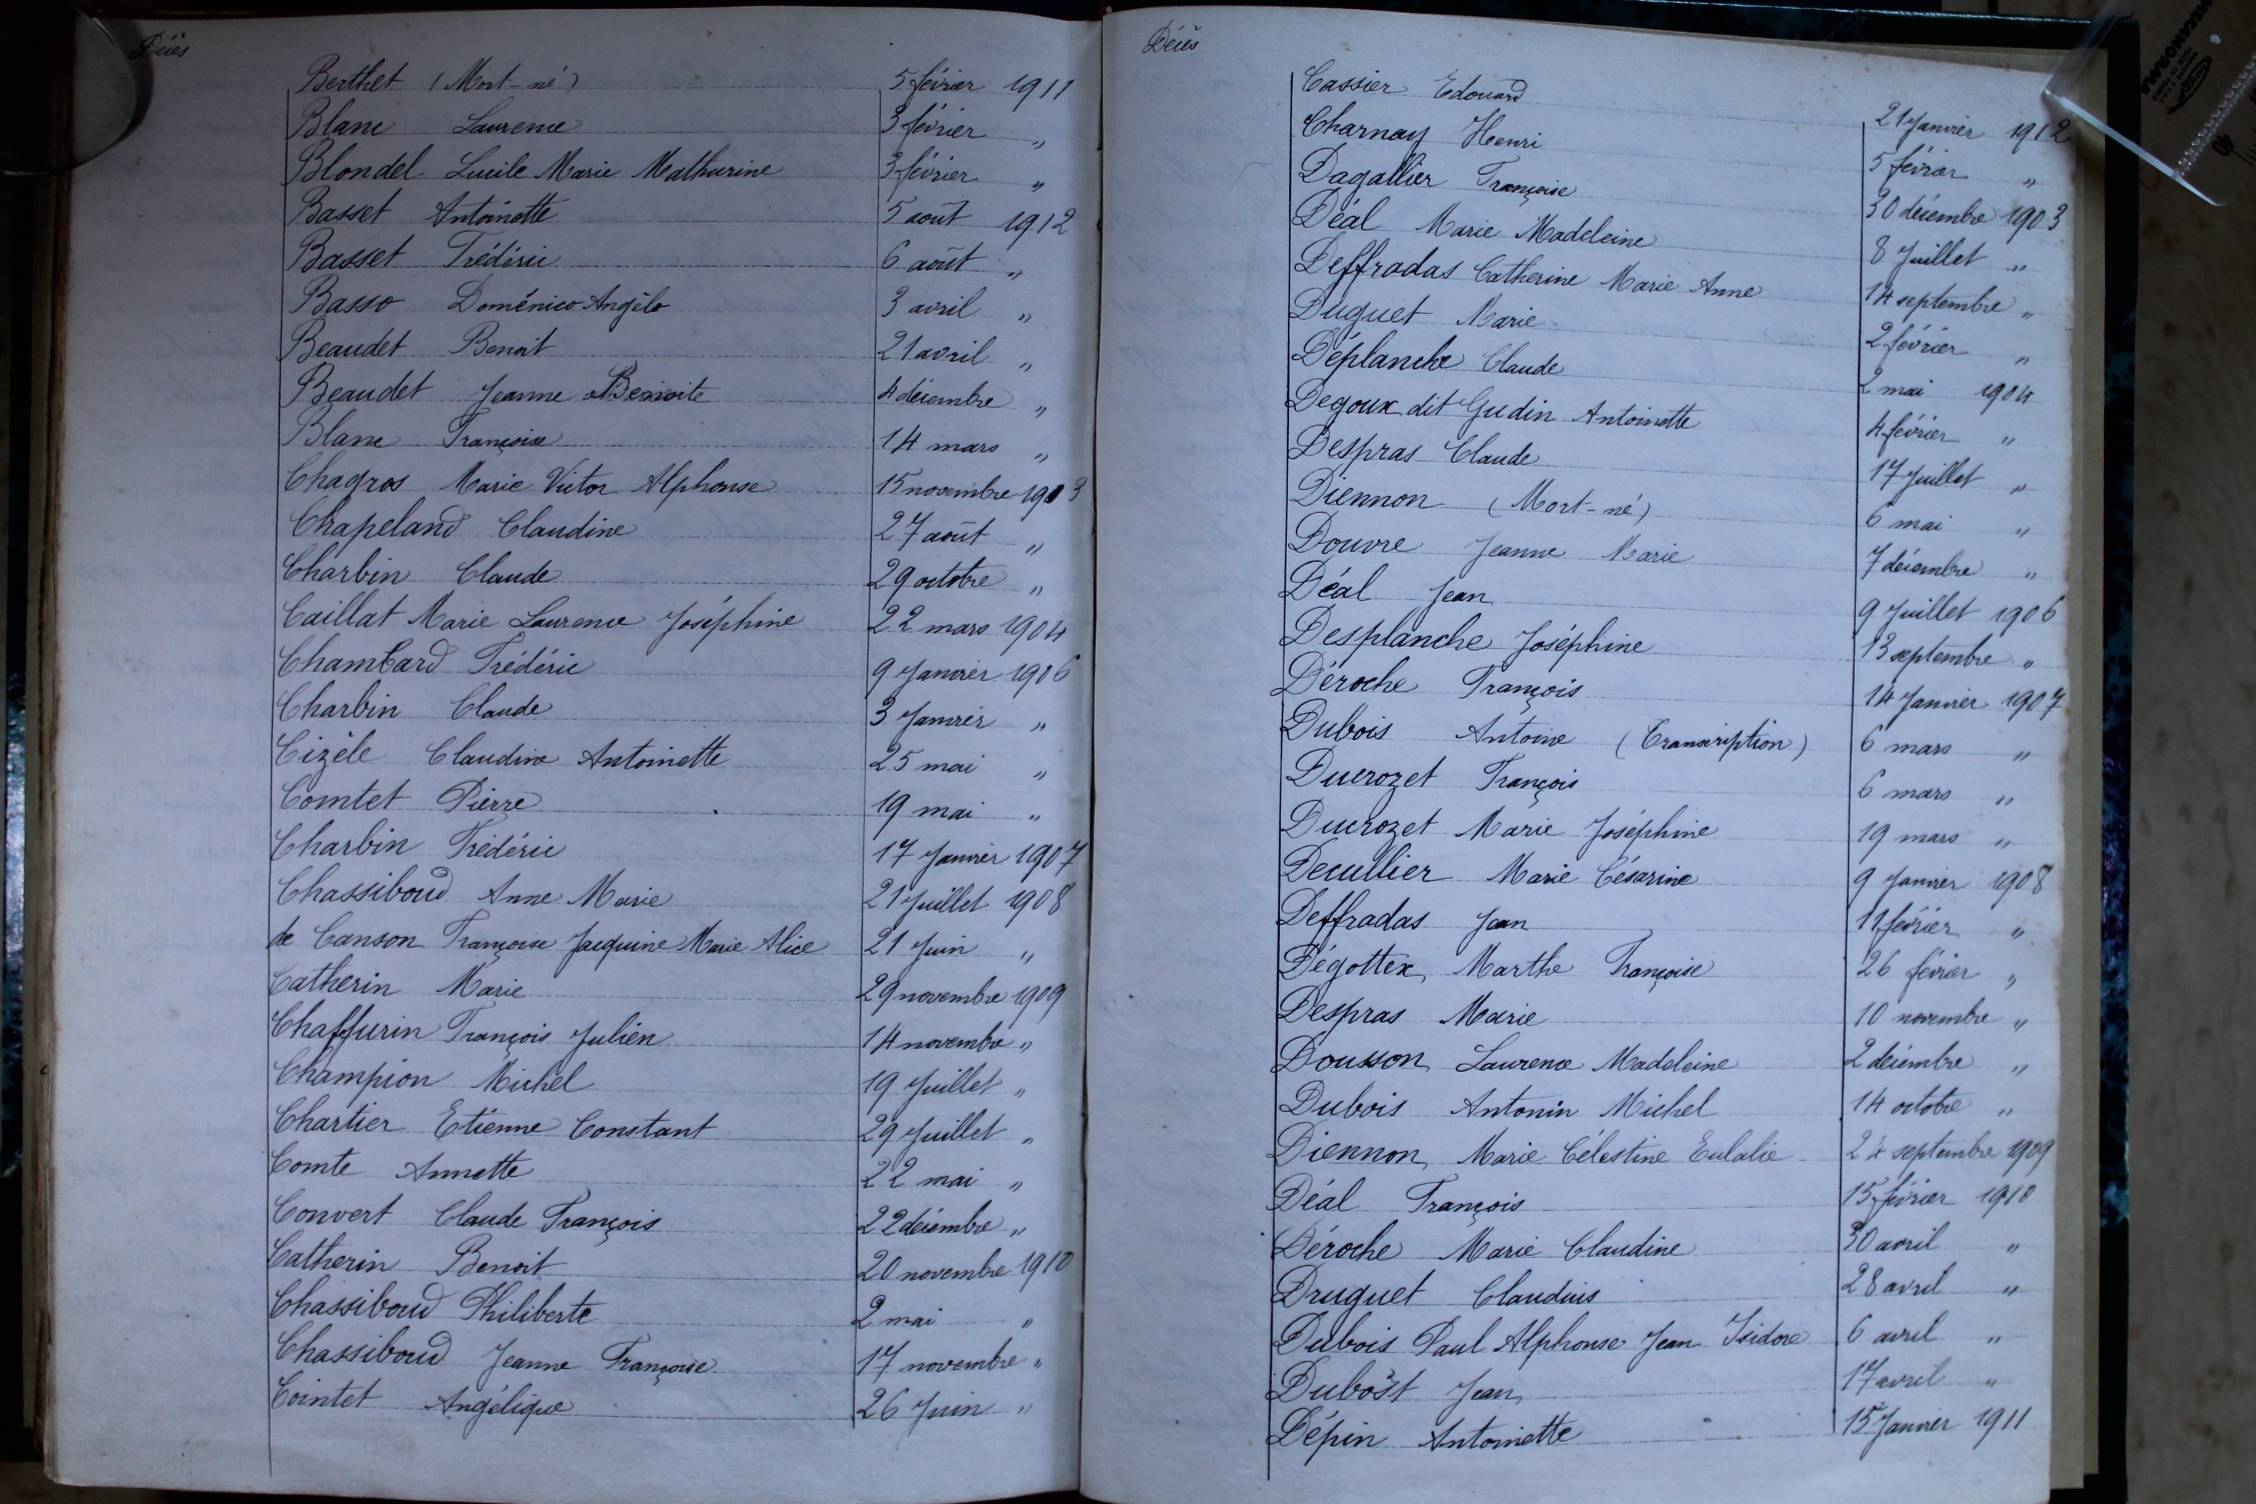 Décès
Berthet (Mort-né) 5 février 1911
Blanc Laurence 3 février "
Blondel Lucile Marie Mathurine 3 février "
Basset Antoinette 5 août 1912
Basset Frédéric 6 août "
Basso Doménico Angélo 3 avril "
Beaudet Benoit 21 avril "
Beaudet Jeanne Benoite 4 décembre "
Blanc Françoise 14 mars "
Chagros Marie Victor Alphonse 15 novembre 1903
Chapeland Claudine 27 août "
Charbin Claude 29 octobre "
Caillat Marie Laurence Joséphine 22 mars 1904
Chambard Frédéric 9 Janvier 1906
Charbin Claude 3 Janvier "
Cizèle Claudine Antoinette 25 mai "
Comtet Pierre 19 mai "
Charbin Frédéric 17 Janvier 1907
Chassiboud Anne Marie 21 Juillet 1908
de Canson Françoise Jacquine Marie Alice 21 Juin "
Catherin Marie 29 novembre 1909
Chaffurin François Julien 14 novembre "
Champion Michel 19 Juillet "
Chartier Etienne Constant 29 Juillet "
Comte Annette 22 mai "
Convert Claude François 22 décembre "
Catherin Benoit 20 novembre 1910
Chassiboud Philiberte 2 mai "
Chassiboud Jeanne Françoise 17 novembre "
Cointet Angélique 26 Juin "
Décès
Cassier Edouard 21 Janvier 1912
Charnay Henri 5 février "
Dagallier Françoise 30 décembre 1903
Déal Marie Madeleine 8 Juillet "
Deffradas Catherine Marie Anne 14 septembre "
Duguet Marie 2 février "
Déplanche Claude 2 mai 1904
Degoux dit Gudin Antoinette 4 février "
Despras Claude 17 Juillet "
Diennon (Mort-né) 6 mai "
Douvre Jeanne Marie 7 décembre "
Déal Jean 9 Juillet 1906
Desplanche Joséphine 13 septembre "
Déroche François 14 Janvier 1907
Dubois Antoine (Transcription) 6 mars "
Ducrozet François 6 mars "
Ducrozet Marie Joséphine 19 mars "
Decullier Marie Césarine 9 Janvier 1908
Deffradas Jean 11 février "
Dégottex Marthe Françoise 26 février "
Despras Marie 10 novembre "
Dousson Laurence Madeleine 2 décembre "
Dubois Antonin Michel 14 octobre "
Diennon Marie Célestine Eulalie 24 septembre 1909
Déal François 15 février 1910
Déroche Marie Claudine 30 avril "
Druguet Claudius 28 avril "
Dubois Paul Alphonse Jean Isidore 6 avril "
Dubost Jean 17 avril "
Dépin Antoinette 15 Janvier 1911